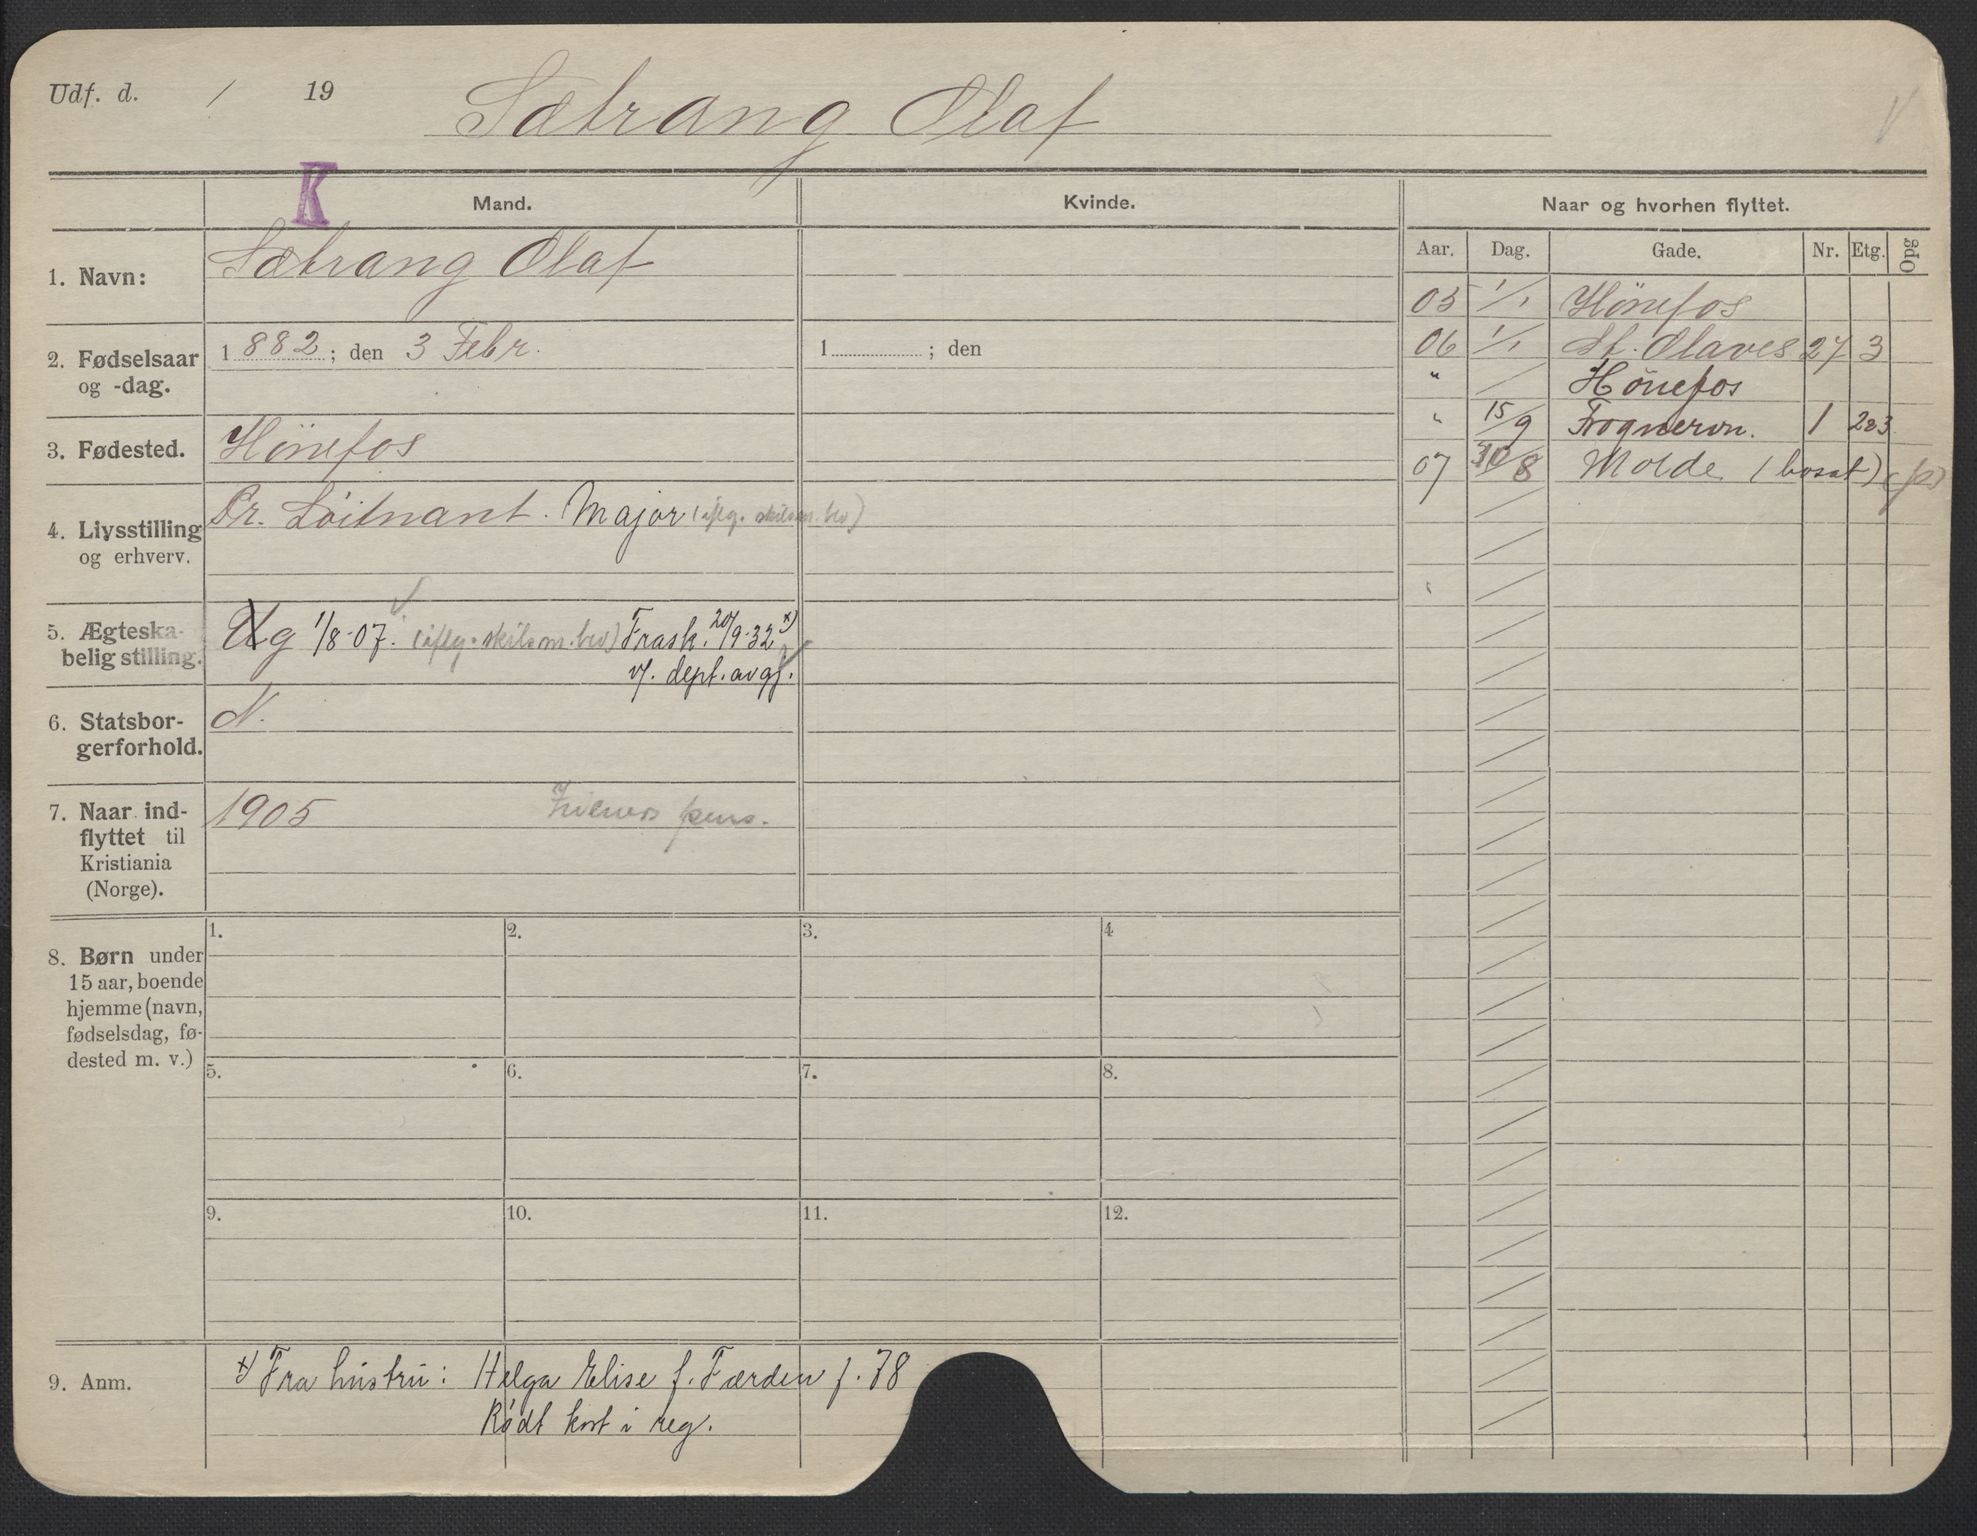 Udf. d. / 19 Sætrang Olaf
K
Mand. Kvinde. Naar og hvorhen flyttet.
Aar. Dag. Gade. Nr. Etg. Opg
1. Navn: Sætrang Olaf
2. Fødselsaar og -dag. 1 882 ; den 3 Febr. 1 ; den
3. Fødested. Hönefos
4. Livsstilling og erhverv. Pr. Löitnant. Major (iflg. skilsm. bev)
5. Ægteskabelig stilling. Ug 1/8-07. (iflg. skilsm. bev) Frask. 20/9-32 x)
v/. dept. avgj.
6. Statsborgerforhold. N.
7. Naar indflyttet til Kristiania (Norge). 1905 pens.
8. Børn under 15 aar, boende hjemme (navn, fødselsdag, fødested m. v.)
1. 2. 3. 4
5. 6. 7. 8.
9. 10. 11. 12.
9. Anm. x) Fra hustru: Helga Elise f. Færden f. 78
Rødt kort i reg.
05 1/1 Hönefos
06 1/1 St. Olaves 27 3
" / Hönefos
" 15/9 Frognervn. 1 2&3
07 30/8 Molde (bosat)